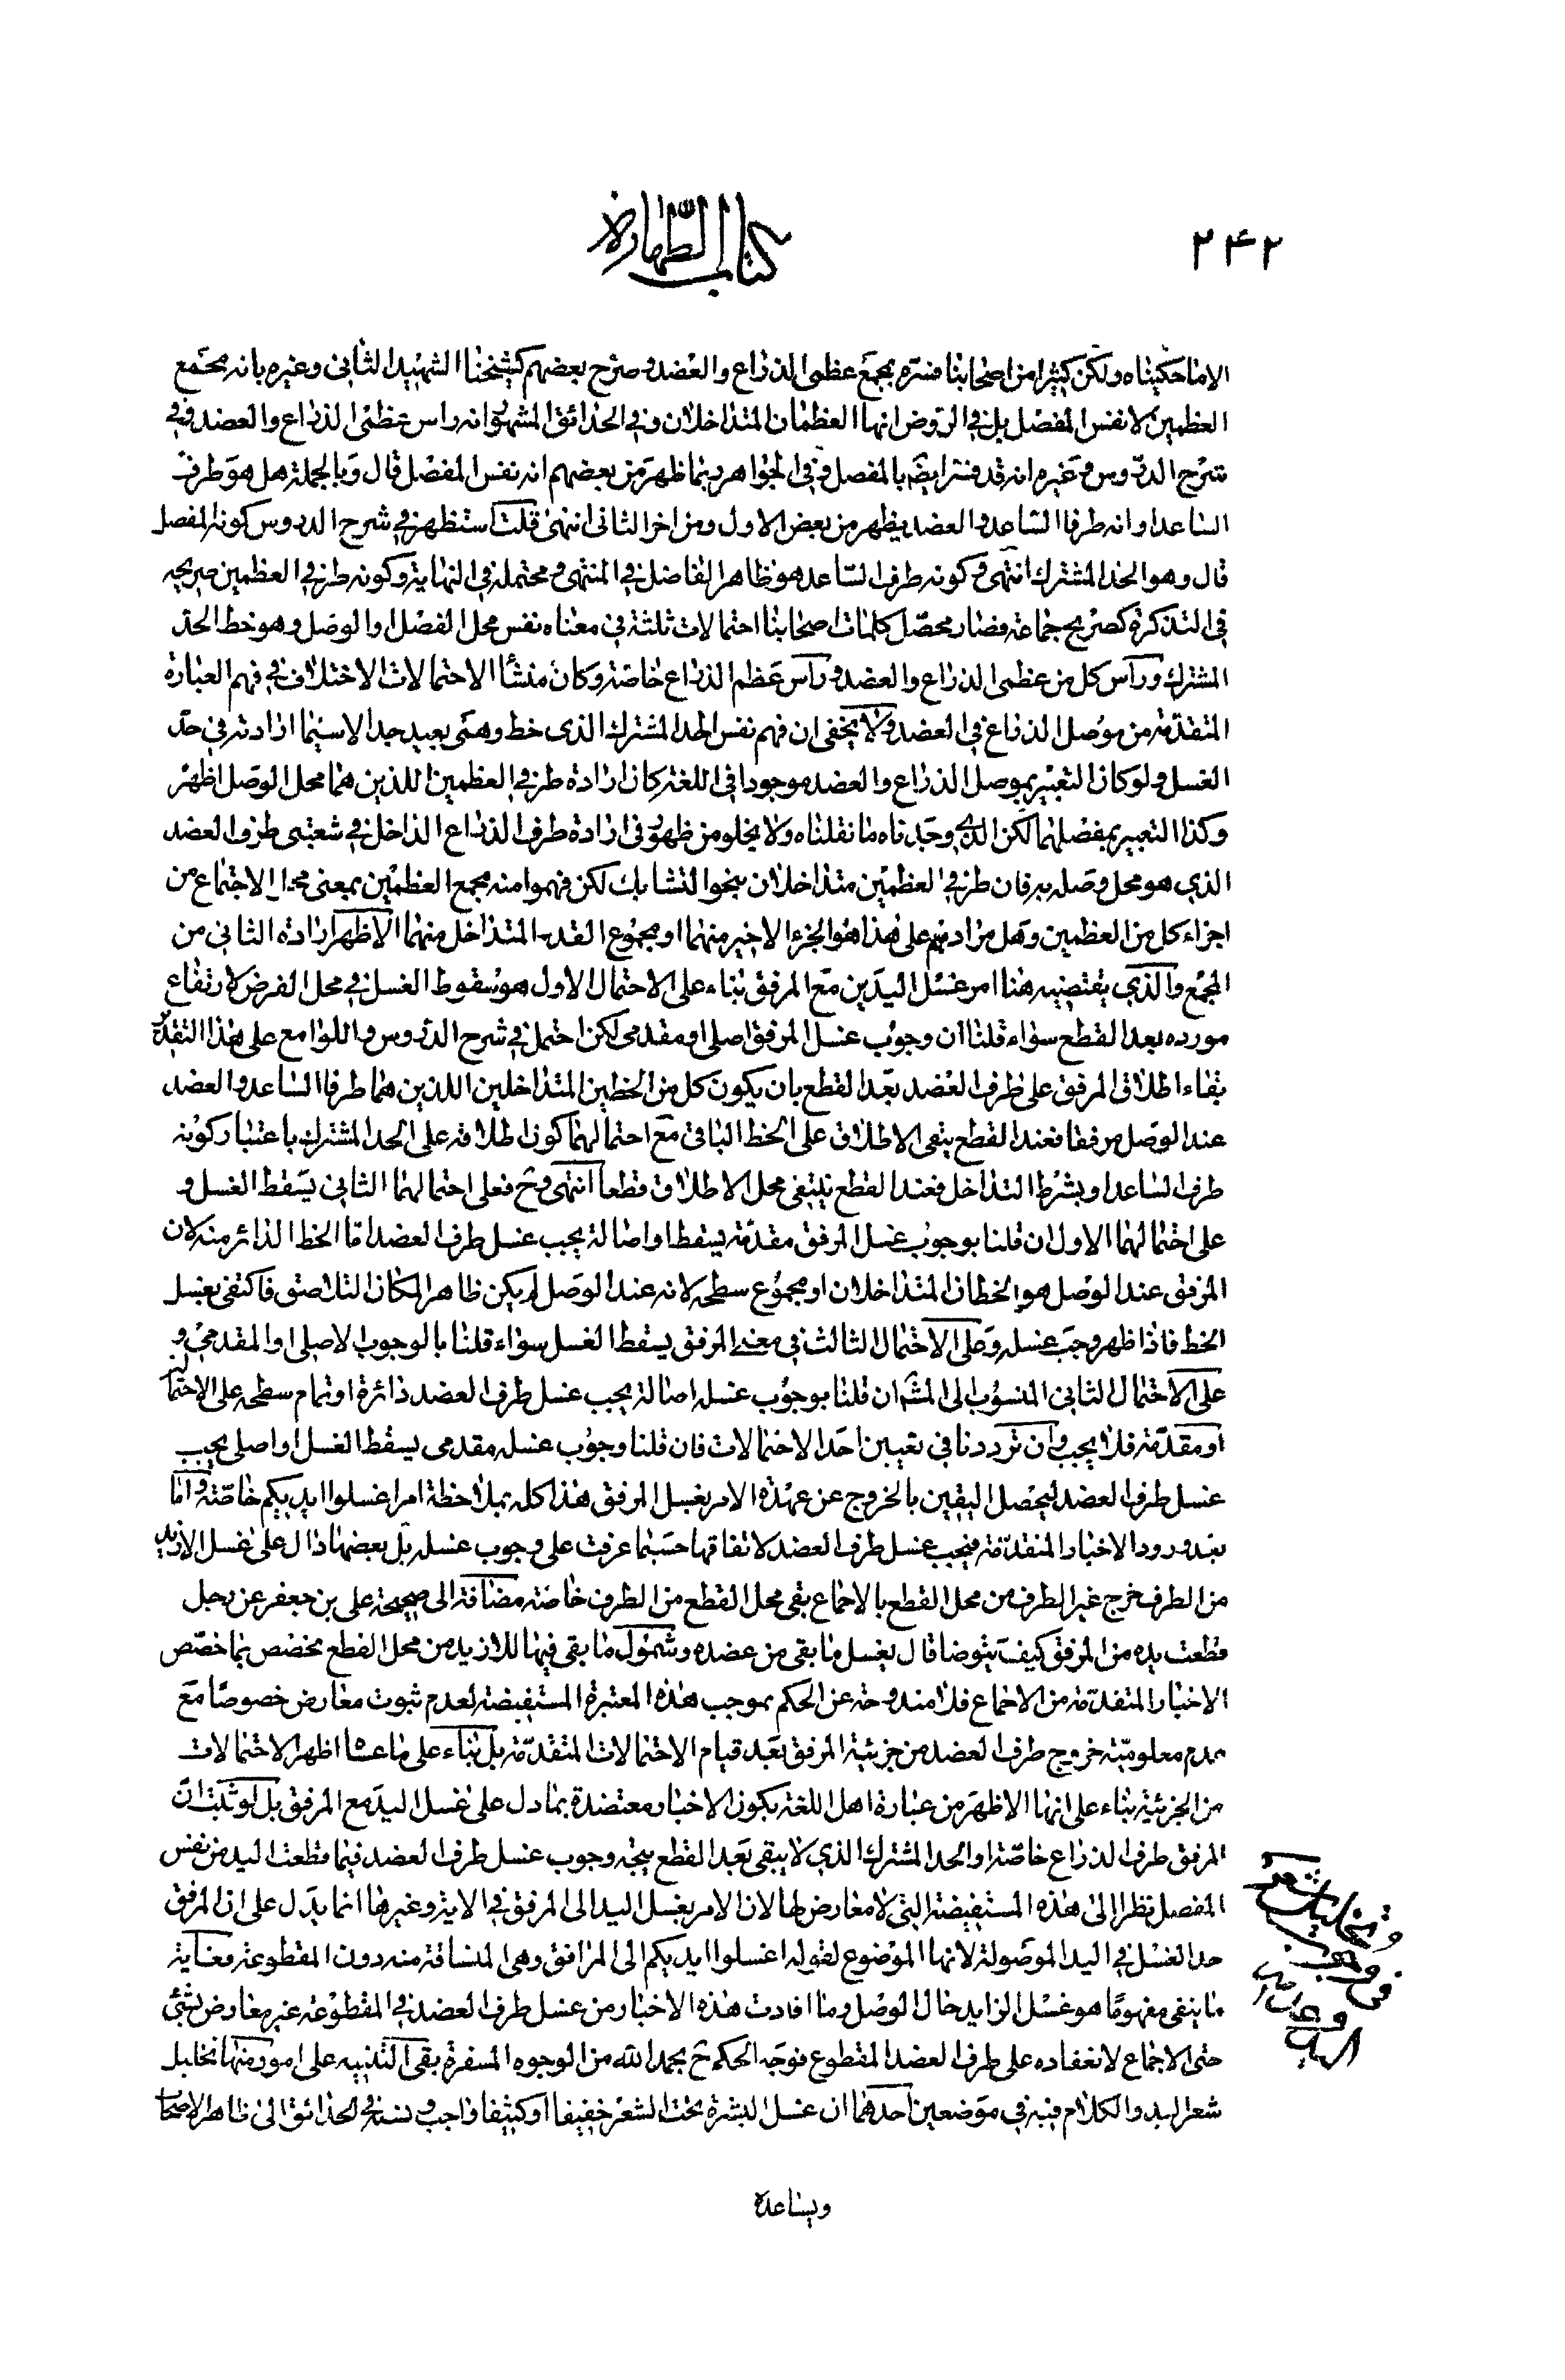 ۲۴۲
كتاب الطهارة
الا ما حكيناه ولكن كثيرا من اصحابنا فسره بمجمع عظمى الذراع والعضد وصرح بعضهم كشيخنا الشهيد الثانى وغيره بانه مجمع
العظمين لا نفس المفصل بل فى الروض انها العظمان المتداخلان وفى الحدائق المشهور انه راس عظمى الذراع والعضد وفى
شرح الدروس وغيره انه قد فسر ايضا بالمفصل وفى الجواهر ربما ظهر من بعضهم انه نفس المفصل قال وبالجملة هل هو طرف
الساعد او انه طرفا الساعد والعضد يظهر من بعض الاول ومن اخر الثانى انتهى قلت استظهر فى شرح الدروس كونه المفصل
قال وهو الحد المشترك انتهى وكونه طرف الساعد هو ظاهر الفاضل فى المنتهى ومحتمله فى النهاية وكونه طرفى العظمين صريحه
فى التذكرة كصريح جماعة فصار محصل كلمات اصحابنا احتمالات ثلثة فى معناه نفس محل الفصل والوصل وهو خط الحد
المشترك وراس كل من عظمى الذراع والعضد وراس عظم الذراع خاصة وكان منشا الاحتمالات الاختلاف فى فهم العبارة
المتقدمة من موصل الذراع فى العضد ولا يخفى ان فهم نفس الحد المشترك الذى خط وهمى بعيد جدا لا سيما ارادته فى حد
الغسل ولو كان التعبير بموصل الذراع والعضد موجودا فى اللغة كان ارادة طرفى العظمين اللذين هما محل الوصل اظهر
وكذا التعبير بمفصلهما لكن الذى وجدناه ما نقلناه ولا يخلو من ظهور فى ارادة طرف الذراع الداخل فى شعبتى طرف العضد
الذى هو محل وصله به فان طرفى العظمين متداخلان بنحو التشابك لكن فهموا منه مجمع العظمين بمعنى محل الاجتماع من
اجزاء كل من العظمين وهل مرادهم على هذا هو الجزء الاخير منهما او مجموع القدر المتداخل منهما الاظهر ارادة الثانى من
المجمع والذى يقتضيه هنا امر غسل اليدين مع المرفق بناء على الاحتمال الاول هو سقوط الغسل فى محل الفرض لارتفاع
مورده بعد القطع سواء قلنا ان وجوب غسل المرفق اصلى او مقدمى لكن احتمل فى شرح الدروس واللوامع على هذا التقدير
بقاء اطلاق المرفق على طرف العضد بعد القطع بان يكون كل من الخطين المتداخلين اللذين هما طرفا الساعد والعضد
عند الوصل مرفقا فعند القطع يبقى الاطلاق على الخط الباقى مع احتمالهما كون اطلاقه على الحد المشترك باعتبار كونه
طرف الساعد او بشرط التداخل فعند القطع ينتفى محل الاطلاق قطعا انتهى وح فعلى احتمالهما الثانى يسقط الغسل و
على احتمالهما الاول ان قلنا بوجوب غسل المرفق مقدمة يسقط او اصالة يجب غسل طرف العضد اما الخط الدائر منه لان
المرفق عند الوصل هو الخطان المتداخلان او مجموع سطحه لانه عند الوصل لم يكن ظاهر المكان التلاصق فاكتفى بغسل
الخط فاذا ظهر وجب غسله وعلى الاحتمال الثالث فى معنى المرفق يسقط الغسل سواء قلنا بالوجوب الاصلى او المقدمى و
على الاحتمال الثانى المنسوب الى المش ان قلنا بوجوب غسله اصالة يجب غسل طرف العضد دائرة او تمام سطحه على الاحتمالين
او مقدمة فلا يجب وان ترددنا فى تعيين احد الاحتمالات فان قلنا وجوب غسله مقدمى يسقط الغسل او اصلى يجب
غسل طرف العضد ليحصل اليقين بالخروج عن عهدة الامر بغسل المرفق هذا كله بملاحظة امر اغسلوا ايديكم خاصة واما
بعد ورود الاخبار المتقدمة فيجب غسل طرف العضد لاتفاقها حسبما عرفت على وجوب غسله بل بعضها دال على غسل الازيد
من الطرف خرج غير الطرف من محل القطع بالاجماع بقى محل القطع من الطرف خاصة مضافة الى صحيحة على بن جعفر عن رجل
قطعت يده من المرفق كيف يتوضا قال يغسل ما بقى من عضده وشمول ما بقى فيها للازيد من محل القطع مخصص بما خصص
الاخبار المتقدمة من الاجماع فلا مندوحة عن الحكم بموجب هذه المعتبرة المستفيضة لعدم ثبوت معارض خصوصا مع
عدم معلومية خروج طرف العضد من جزئية المرفق بعد قيام الاحتمالات المتقدمة بل بناء على ما عندنا اظهر الاحتمالات
من الجزئية بناء على انها الاظهر من عبارة اهل اللغة يكون الاخبار معتضدة بما دل على غسل اليد مع المرفق بل لو ثبت ان
المرفق طرف الذراع خاصة او الحد المشترك الذى لا يبقى بعد القطع يتجه وجوب غسل طرف العضد فيما قطعت اليد من نفس
المفصل نظرا الى هذه المستفيضة التى لا معارض لها لان الامر بغسل اليد الى المرفق فى الاية وغيرها انما يدل على ان المرفق
حد الغسل فى اليد الموصولة لانها الموضوع لقوله اغسلوا ايديكم الى المرافق وهى المنساقة منه دون المقطوعة وغاية
ما ينفى مفهوما هو غسل الزايد حال الوصل وما افادت هذه الاخبار من غسل طرف العضد فى المقطوعة غير معارض بشئ
حتى الاجماع لانعقاده على طرف العضد المقطوع فوجه الحكم ح بحمد الله من الوجوه المسفرة بقى التنبيه على امور منها تخليل
شعر اليد والكلام فيه فى موضعين احدهما ان غسل البشرة تحت الشعر خفيفا او كثيفا واجب ونسبه فى الحدائق الى ظاهر الاصحاب
ويساعده